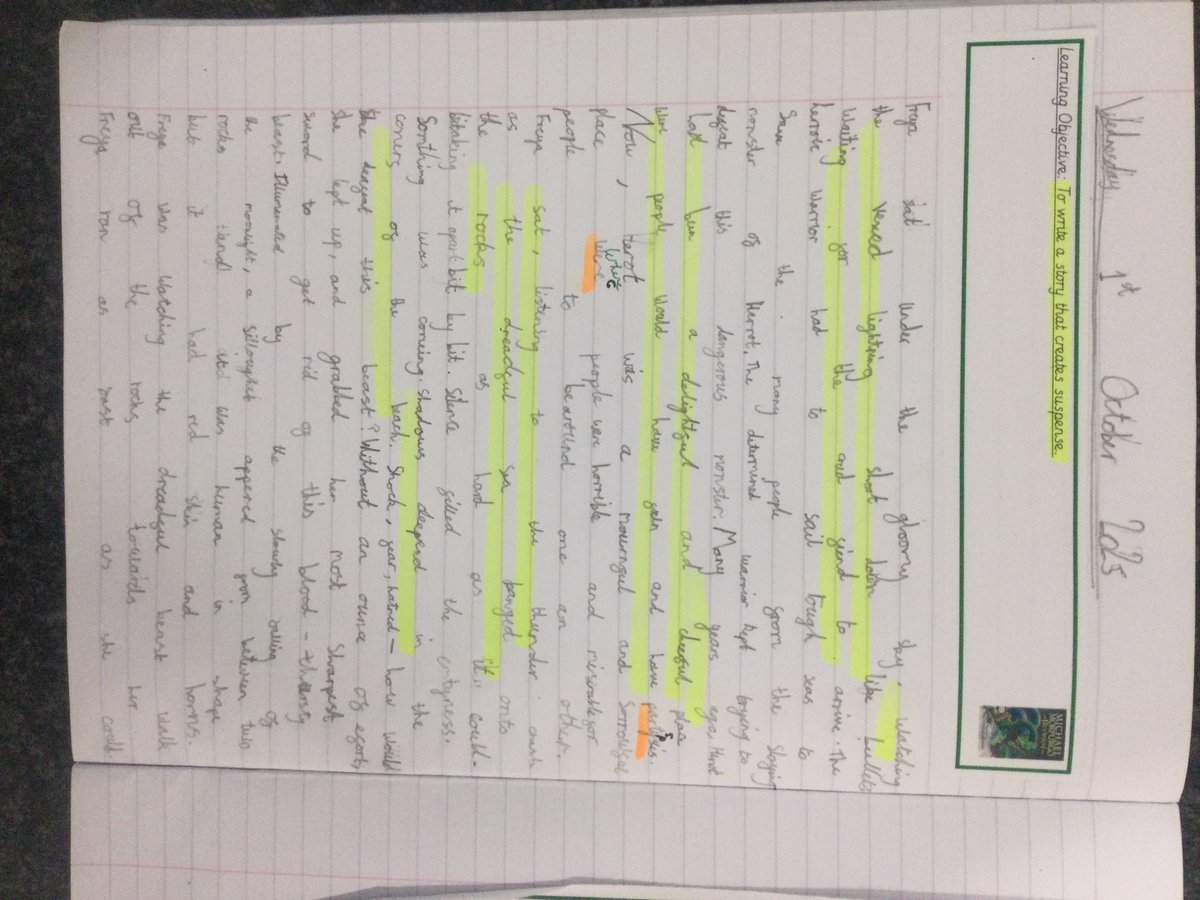 Wednesday 1st October 2025
Learning Objective: To write a story that creates suspense.
MICHAEL MORPURGO
BEOWULF
Freya sat under the gloomy sky. Watching
the vexed lightning shoot down like bullets
Waiting for the and feind to arive. The
herroic warrior had to sail tough seas to
Save the many people from the Slaying
monster of Herrot. The determined warrior kept trying to
defeat this dangerous monster. Many years ego, Herot
had been a delightful and cheerful place
were people would have fun and have partys.
Now, Herot was a mournful and Sorrowful
place where people wer horrible and misirable for
people to bearound one an other.
Freya sat, listening to the thunder crash
as the dreadful sea banged onto
the rocks as hard as it could.
braking it apart bit by bit. Silence filled the entyness.
Somthing was coming. Shadows deepend in the
corners of the beach. Shock, fear, hatred - how would
She defeat this beast? Without an ounce of efort,
She kept up, and grabbed her most Sharpest
sword to get rid of this blood-thersty
beast. Illumenated by the slowly falling of
the moonlight, a silloughet appered from between two
rocks and was human in shape
but it had red skin and horns.
Freya was Watching the dreadful beast Walk
out of the rocks towards her
Freya ran as fast as she could